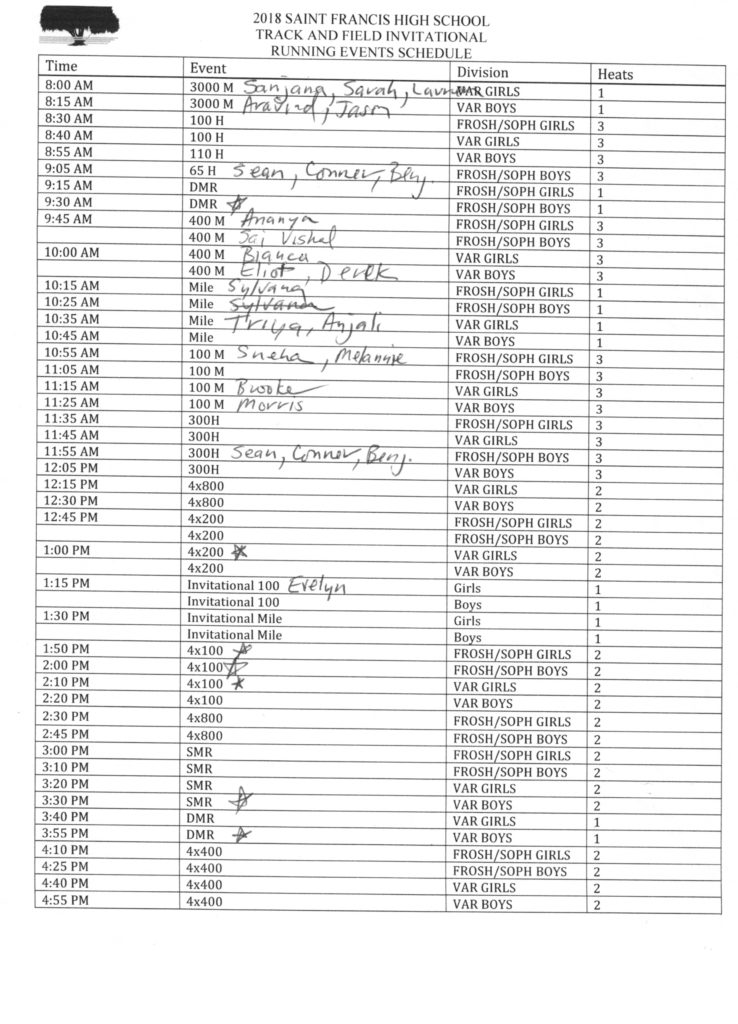 2018 SAINT FRANCIS HIGH SCHOOL
TRACK AND FIELD INVITATIONAL
RUNNING EVENTS SCHEDULE
Time Event Division Heats
8:00 AM 3000 M Sanjana, Sarah, VAR GIRLS 1
8:15 AM 3000 M Aravind, Jason VAR BOYS 1
8:30 AM 100 H FROSH/SOPH GIRLS 3
8:40 AM 100 H VAR GIRLS 3
8:55 AM 110 H VAR BOYS 3
9:05 AM 65 H Sean, Conner, Benj. FROSH/SOPH BOYS 3
9:15 AM DMR FROSH/SOPH GIRLS 1
9:30 AM DMR FROSH/SOPH BOYS 1
9:45 AM 400 M Ananya FROSH/SOPH GIRLS 3
400 M Sai Vishal FROSH/SOPH BOYS 3
10:00 AM 400 M Bianca VAR GIRLS 3
400 M Eliot, Derek VAR BOYS 3
10:15 AM Mile Sylvana FROSH/SOPH GIRLS 1
10:25 AM Mile Sylvana FROSH/SOPH BOYS 1
10:35 AM Mile Triya, Anjali VAR GIRLS 1
10:45 AM Mile VAR BOYS 1
10:55 AM 100 M Sneha, Melanie FROSH/SOPH GIRLS 3
11:05 AM 100 M FROSH/SOPH BOYS 3
11:15 AM 100 M Brooke VAR GIRLS 3
11:25 AM 100 M Morris VAR BOYS 3
11:35 AM 300H FROSH/SOPH GIRLS 3
11:45 AM 300H VAR GIRLS 3
11:55 AM 300H Sean, Connor, Benj. FROSH/SOPH BOYS 3
12:05 PM 300H VAR BOYS 3
12:15 PM 4x800 VAR GIRLS 2
12:30 PM 4x800 VAR BOYS 2
12:45 PM 4x200 FROSH/SOPH GIRLS 2
4x200 FROSH/SOPH BOYS 2
1:00 PM 4x200 VAR GIRLS 2
4x200 VAR BOYS 2
1:15 PM Invitational 100 Evelyn Girls 1
Invitational 100 Boys 1
1:30 PM Invitational Mile Girls 1
Invitational Mile Boys 1
1:50 PM 4x100 FROSH/SOPH GIRLS 2
2:00 PM 4x100 FROSH/SOPH BOYS 2
2:10 PM 4x100 VAR GIRLS 2
2:20 PM 4x100 VAR BOYS 2
2:30 PM 4x800 FROSH/SOPH GIRLS 2
2:45 PM 4x800 FROSH/SOPH BOYS 2
3:00 PM SMR FROSH/SOPH GIRLS 2
3:10 PM SMR FROSH/SOPH BOYS 2
3:20 PM SMR VAR GIRLS 2
3:30 PM SMR VAR BOYS 2
3:40 PM DMR VAR GIRLS 1
3:55 PM DMR VAR BOYS 1
4:10 PM 4x400 FROSH/SOPH GIRLS 2
4:25 PM 4x400 FROSH/SOPH BOYS 2
4:40 PM 4x400 VAR GIRLS 2
4:55 PM 4x400 VAR BOYS 2